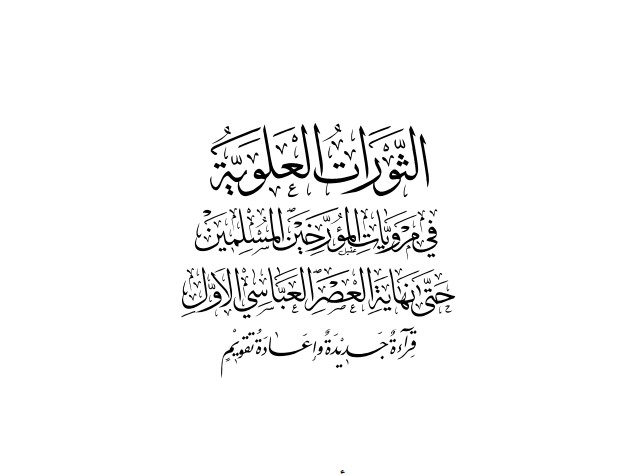 الثَّوَرَاتُ العَلَوِيَّةُ
فِي مَرْوِيَّاتِ المُؤَرِّخِيْنَ المُسْلِمِيْنَ
حَتَّى نِهَايَةِ العَصْرِ العَبَّاسِيِّ الأَوَّلِ
قِرَآءَةٌ جَدِيْدَةٌ وَإِعَادَةُ تَقْوِيْمٍ